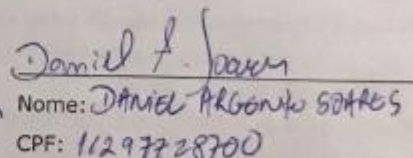 Daniel A. Soares
Nome: DANIEL ARGENIO SOARES
CPF: 11297728700